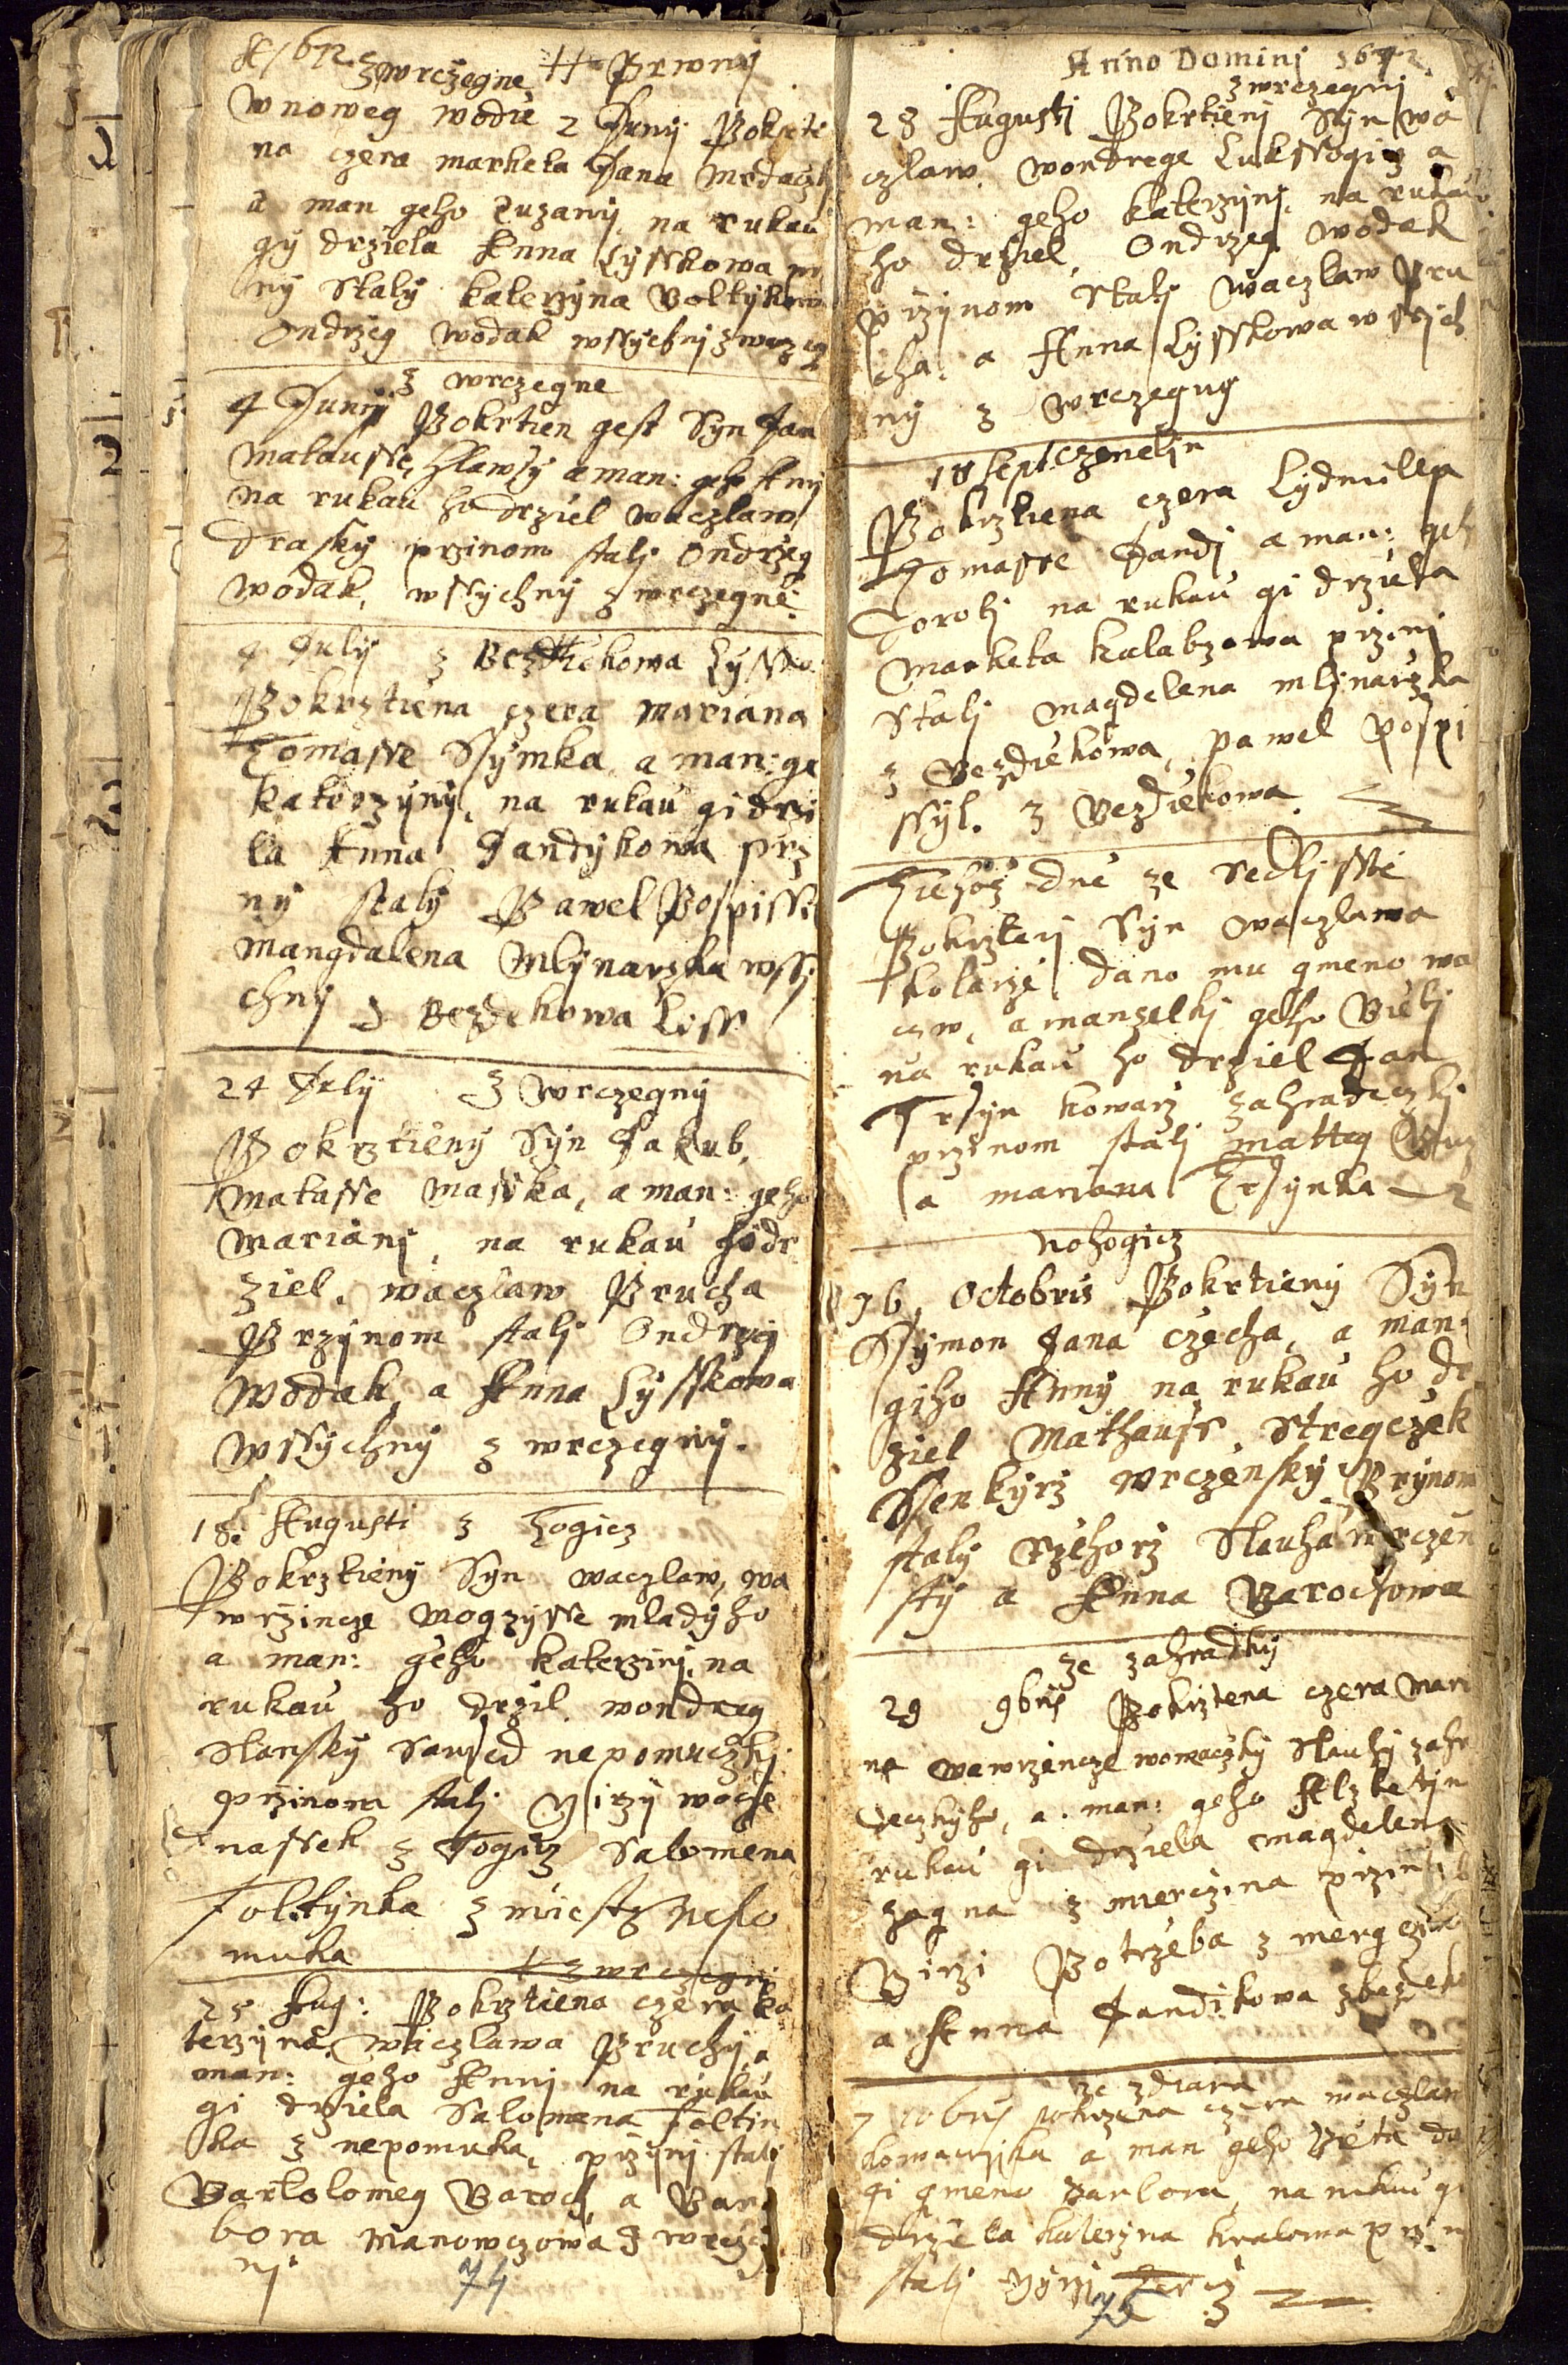 A 1672 z wrczegne ++ Prwnj
wnoweg wodie 2 Juny Pokrtie
na czera marketa Jana mrdaczk
a man geho zuzany, na rukau
gy drziela Anna Lysskowa prz
ny Staly katerzyna Voltykow
Ondrzeg wodak wssychny z wrczeg
z wrczegne
4 Juny Pokrtien gest Syn Jan
matausse Hlawsy a man: geho Any
na rukau ho drziel waczlaw
Drasky przinom stalj Ondrzeg
wodak, wssychny z wrczegne
4 July z Bezdiekowa Lysse
Pokrztiena czera mariana
Tomasse Ssymka a man: ge
katerzyny, na rukau gi drzi
la Anna Jandykowa prz
ny staly Pawel Pospissil
mangdalena Mlynarzka wssy
chny z Bezdekowa Liss
24 July z wrczegny
Pokrztieny Syn Jakub,
matasse masska, a man: geho
marianj, na rukau ho dr
ziel. waczlaw Prucha
Przynom stalj Ondrzeg
wodak a Anna Lysskowa
wssychny z wrczegny.
18: Augusti z Togicz
Pokrztieny Syn waczlaw, wa
wrzincze mogzysse mladyho
a man: geho katerzinj, na
rukau ho drzil. wondreg
Slansky Saused nepomuczkj
przinom stalj Girzy
nassek z Togicz Salomena
Foltynka z miesta nepo
muka
z wrczegnj
25 Aug: Pokrztiena czera ka
terzyna waczlawa Pruchy, a
man: geho Annj na rukau
gi drziela Salomena Foltin
ka z nepomuka, przynj stalj
Bartolomeg Baroch a Bar
bora manowczowa z wrczeg
nj
74
Anno Dominj 1672.
z wrczegnj
28 Augustj Pokrtienj Syn wa
czlaw. wondrege Lukssogicz a
man: geho katerzynj, na rukau
ho drziel, Ondrzeg wodak
przynom Stalj waczlaw Pru
cha, a Anna Lysskowa wssych
ny z wrczegny
18 Sept:
Pokrztiena czera Lydmilla
Tomasse Jandj a man: geh
Dorotj na rukau gi drziela
marketa kalabzowa przi nj
Stalj magdelena mlynarzka
z Bezdiekowa, pawel pospi
ssyl. z Bezdiekowa.
Tiehoz dne ze Sedlisstie
Pokrztenj Syn waczlawa
kolarze dano mu gmeno wa
czw, a manzelkj geho Bielj
na rukau ho drziel Jan
Trsyn kowarz zahradeczkj
przinom stalj matteg
a mariana Trsynka
nohogicz
16, Octobris Pokrtieny Syn
Ssymon Jana Czecha, a man:
giho Anny na rukau ho dr
ziel Mathauss Stregczek
Ssenkyrz wrczensky Przynom
staly Rzehorz Slauha wrczen
sky a Anna Barochowa
ze zahradky
29 9bris Pokrztena czera mari
na wawrzincze womaczky Slauhy zahra
deczkyho, a. man: geho Alzbety na
rukau gi drziela magdelena
z mierczina przi nj
Girzi Potrzeba z
a Anna Jandikowa z bezdeko
ze zdiara
7 10bris pokrztena czera waczlaw
a man geho Beta da
gi gmeno Barbora, na rukau gi
drziela katerzyna kralowa przi n
stalj
75